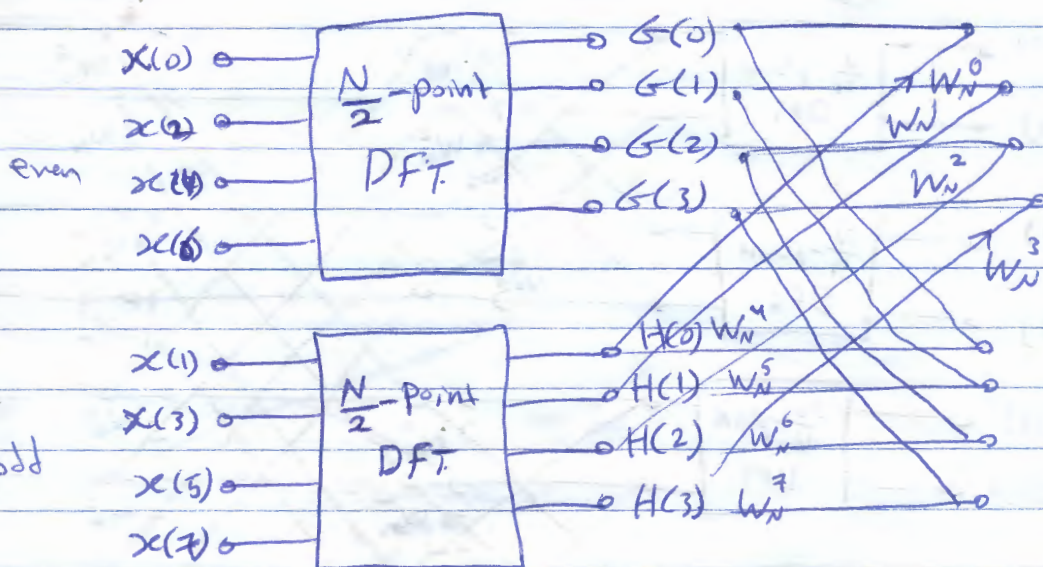 x(0)
x(2)
even
x(4)
x(6)
N/2-point
DFT
G(0)
G(1)
G(2)
G(3)
W_N^0
W_N^1
W_N^2
W_N^3
x(1)
x(3)
odd
x(5)
x(7)
N/2-point
DFT
H(0) W_N^4
H(1) W_N^5
H(2) W_N^6
H(3) W_N^7